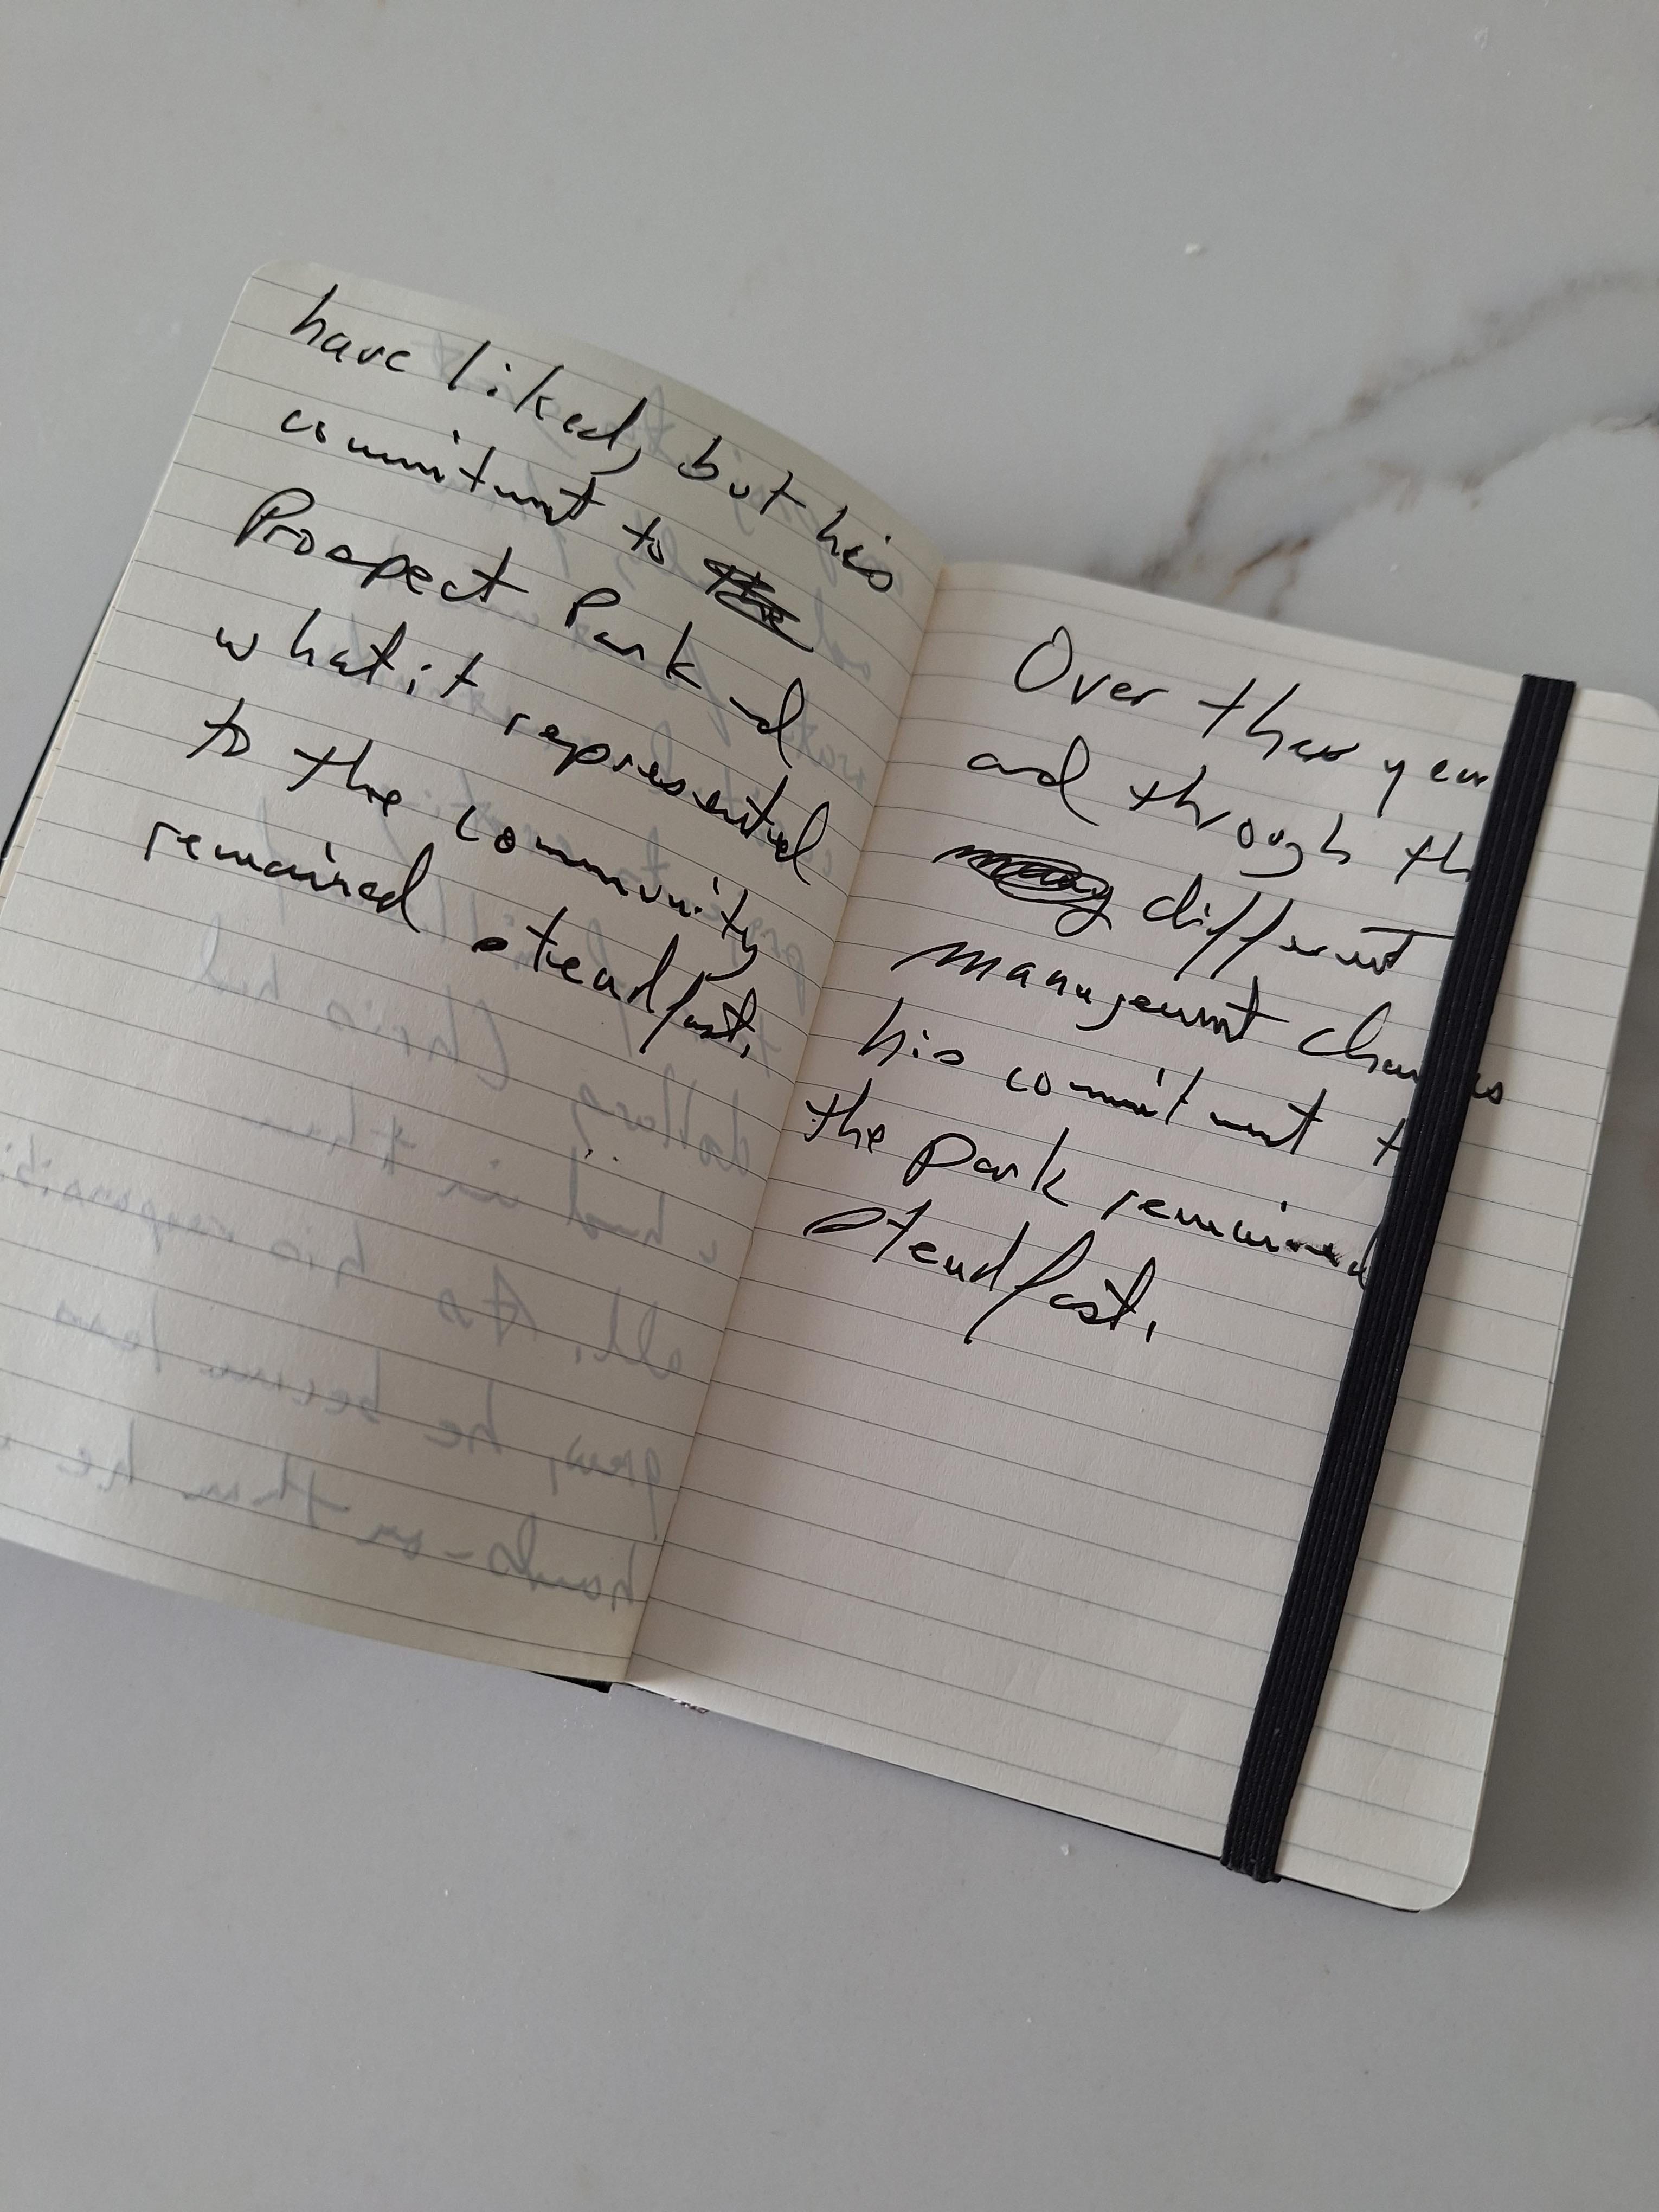 have liked, but his
commitment to the
Prospect Park and
what it represented
to the community
remained steadfast.
Over these year
and through th
many different
management chan es
his commitment t
the Park remained
steadfast.